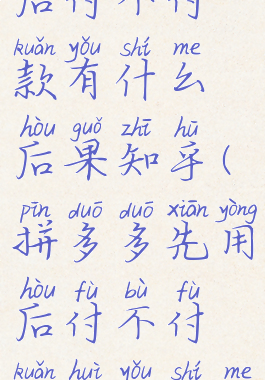 后付不付
kuǎn yǒu shí me
款有什么
hòu guǒ zhī hū
后果知乎(
pīn duō duō xiān yòng
拼多多先用
hòu fù bù fù
后付不付
kuǎn huì yǒu shí me